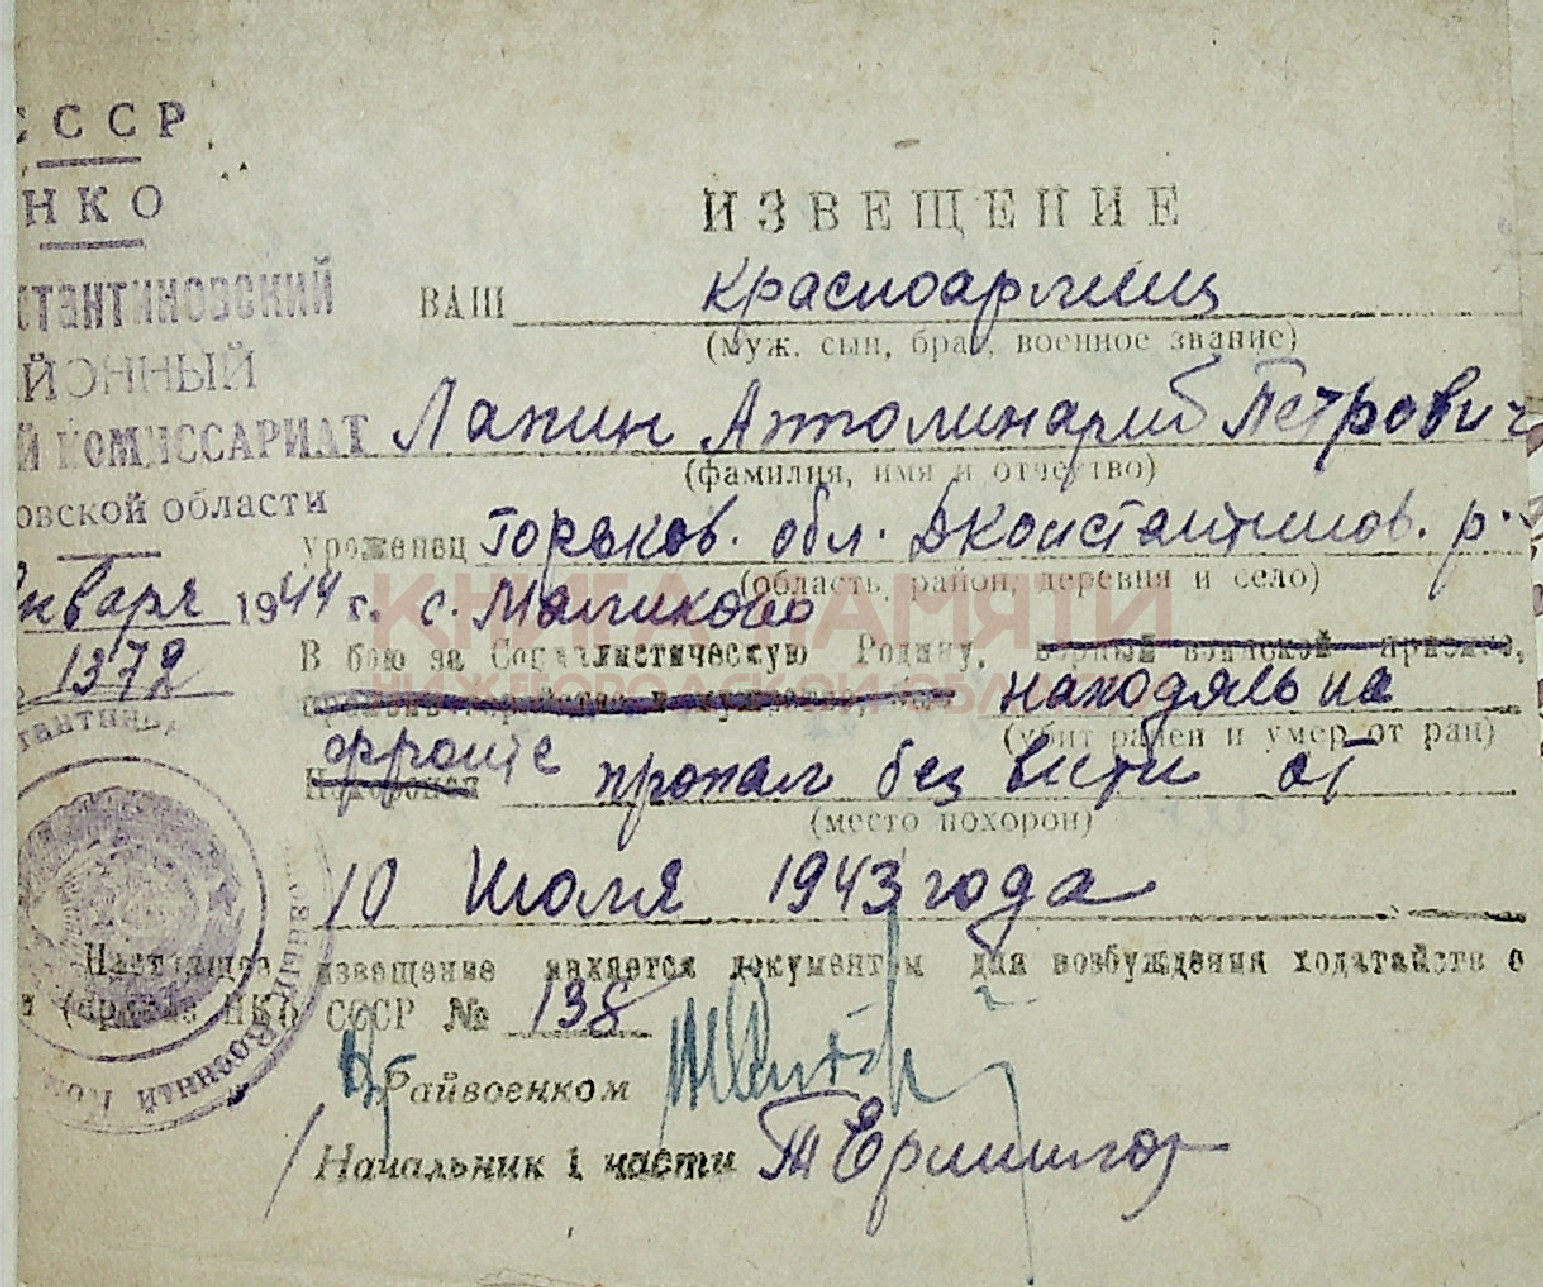 СССР
НКО
стантиновский
айонный
й комиссариат
овской области
января 1944 г.
1372
ИЗВЕЩЕНИЕ
ВАШ красноармеец
(муж. сын, брат, военное звание)
Лапин Апполинарий Петрович
(фамилия, имя и отчество)
уроженец Горьков. обл. ДКонстантинов. р.
(область, район, деревня и село)
с. Маликово
КНИГА ПАМЯТИ
НИЖЕГОРОДСКОЙ ОБЛАСТИ
В бою за Социалистическую Родину, верный воинской присяге,
проявив геройство и мужество, был находясь на
(убит ранен и умер от ран)
фронте
Похоронен пропал без вести от
(место похорон)
10 Июля 1943 года
Настоящее извещение является документом для возбуждения ходатайств о
и (приказ НКО СССР № 138
Райвоенком
Начальник 1 части
Военный Ком